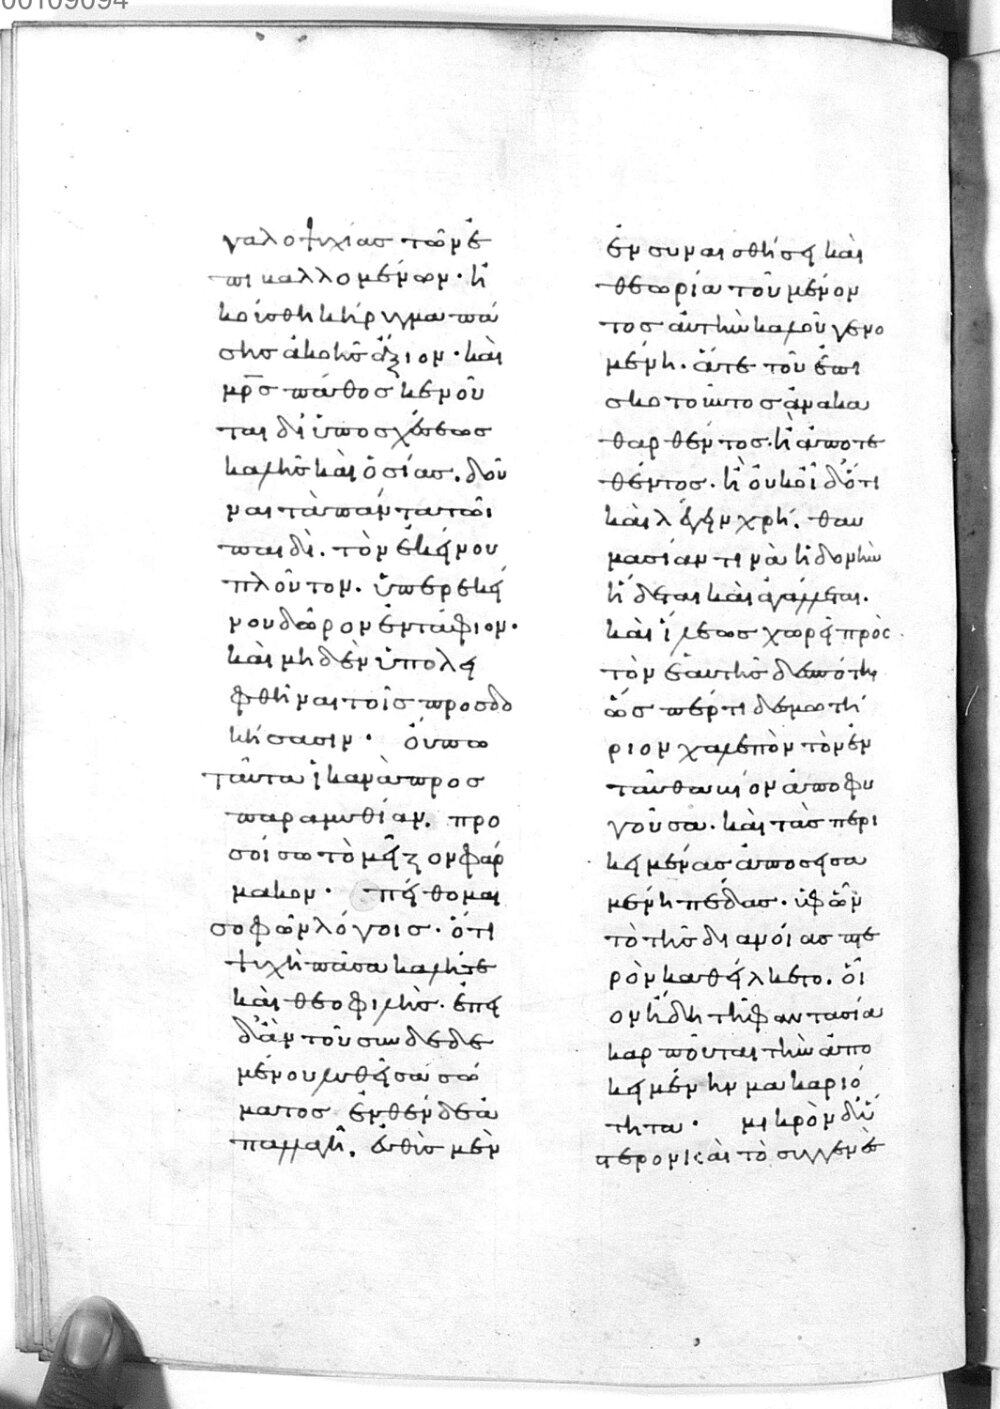 00109094
γαλοψυχίας τῶν ἐ
πικαλλομένων· ἠ
κούσθη κήρυγμα πά
σης ἀκοῆς ἄξιον· καὶ
μρ̅ς πάθος κενοῦ
ται δι' ὑποσχέσεως
καλῆς καὶ ὁσίας. δοῦ
ναι τὰ πάντα τῶι
παιδὶ. τὸν ἐκείνου
πλοῦτον. ὑπὲρ ἐκεί
νου δῶρον ἐντάφιον·
καὶ μηδὲν ὑπολει
φθῆναι τοῖς προσδο
κήσασιν· οὔπω
ταῦτα ἱκανὰ πρὸς
παραμυθίαν. προ
σοίσω τὸ μεῖζον φάρ
μακον· πείθομαι
σοφῶν λόγοις· ὅτι
ψυχὴ πᾶσα καλή τε
καὶ θεοφιλὴς. ἐπει
δὰν τοῦ συνδεδε
μένου λυθεῖσα σώ
ματος ἐνθένδε ἀ
παλλαγῆ. εὐθὺς μὲν
ἐν συναισθήσει καὶ
θεωρία τοῦ μένον
τος αὐτὴν καλοῦ γενο
μένη. ἅτε τοῦ ἐπι
σκοτοῦντος ἀνακα
θαρθέντος· ἢ ἀποτε
θέντος. ἢ οὐκ οἶδ' ὅτι
καὶ λέγειν χρή. θαυ
μασίαν τινὰ ἡδονὴν
ἥδεται καὶ ἀγάλλεται.
καὶ ἵλεως χωρεῖ πρὸς
τὸν ἑαυτῆς δεσπότην
ὥσπέρ τι δεσμωτή
ριον χαλεπὸν τὸν ἐν
ταῦθα βίον ἀποφυ
γοῦσα. καὶ τὰς περι
κειμένας ἀποσεισα
μένη πέδας. ὑφ' ὧν
τὸ τῆς διανοίας πτε
ρὸν καθείλκετο. οἷ
ον ἤδη τῆ φαντασία
καρποῦται τὴν ἀπο
κειμένην μακαριό
τητα· μικρὸν δ' ὕ
στερον καὶ τὸ συγγενὲς